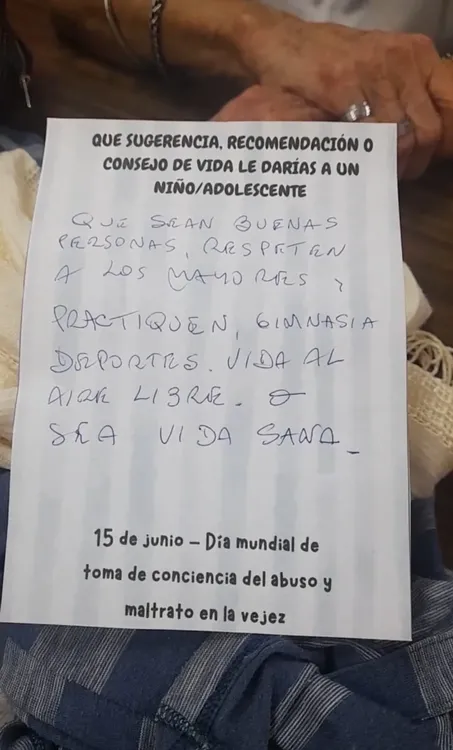 QUE SUGERENCIA, RECOMENDACIÓN O
CONSEJO DE VIDA LE DARÍAS A UN
NIÑO/ADOLESCENTE
QUE SEAN BUENAS
PERSONAS, RESPETEN
A LOS MAYORES Y
PRACTIQUEN, GIMNASIA
DEPORTES. VIDA AL
AIRE LIBRE. O
SEA VIDA SANA
15 de junio – Día mundial de
toma de conciencia del abuso y
maltrato en la vejez